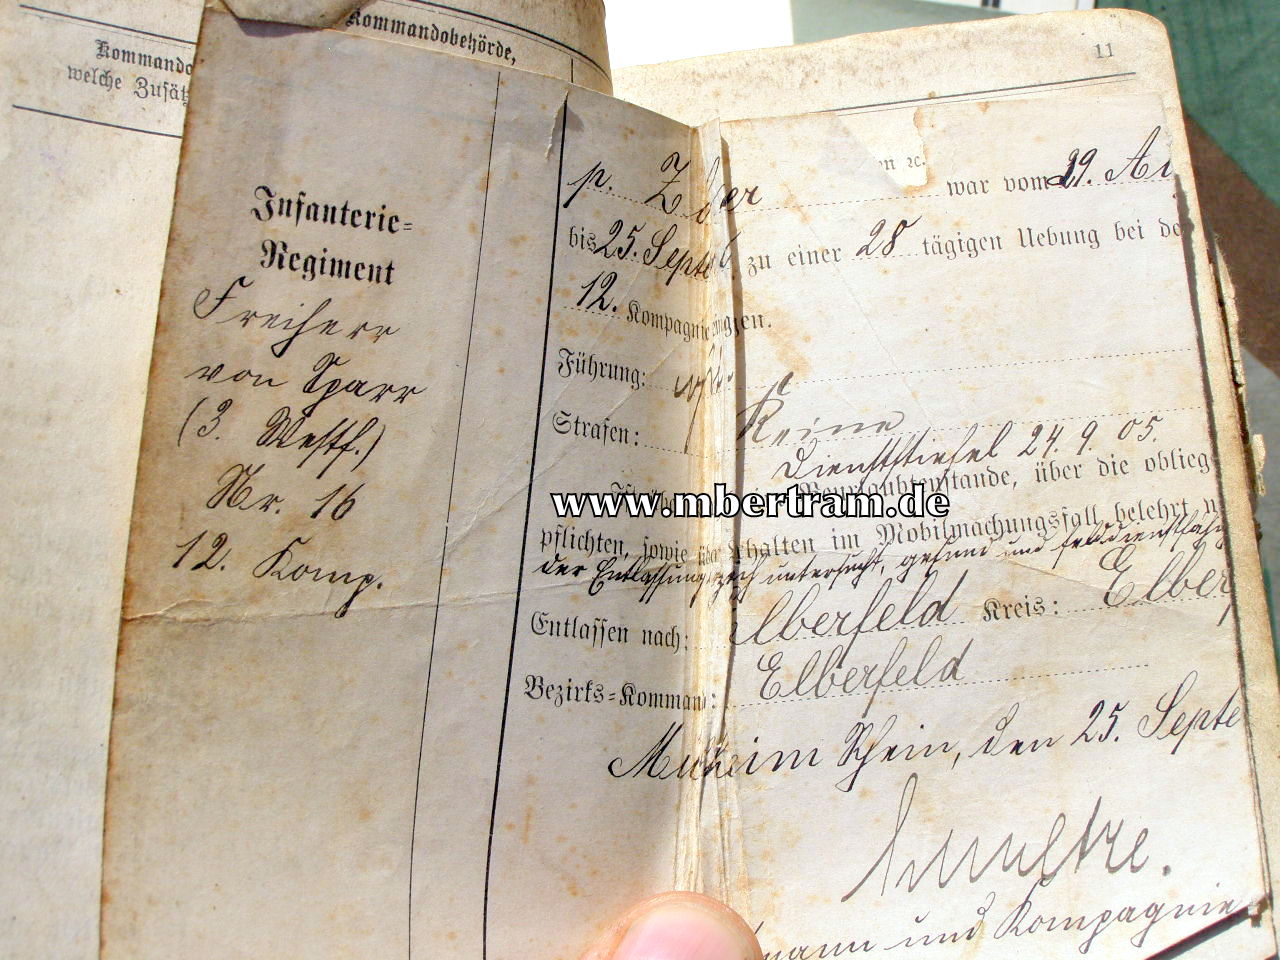 Kommandobehörde,
welche Zusätz
11
Infanterie=
Regiment
Freiherr
von Sparr
(3. Westf.)
Nr. 16
12. Komp.
war vom 29. Au
bis 25. Septeb zu einer 28 tägigen Uebung bei de
12. Kompagnie
Führung:
Strafen: Keine
Dienststiefel 24. 9. 05.
Beurlaubtenstande, über die oblieg
pflichten, sowie über Verhalten im Mobilmachungsfall belehrt
der Entlassung ärztlich untersucht, gesund und felddienstfähi
Entlassen nach: Elberfeld Kreis: Elber
Bezirks=Komman : Elberfeld
Mülheim Rhein, den 25. Septe
Schultze.
mann und Kompagnie
www.mbertram.de